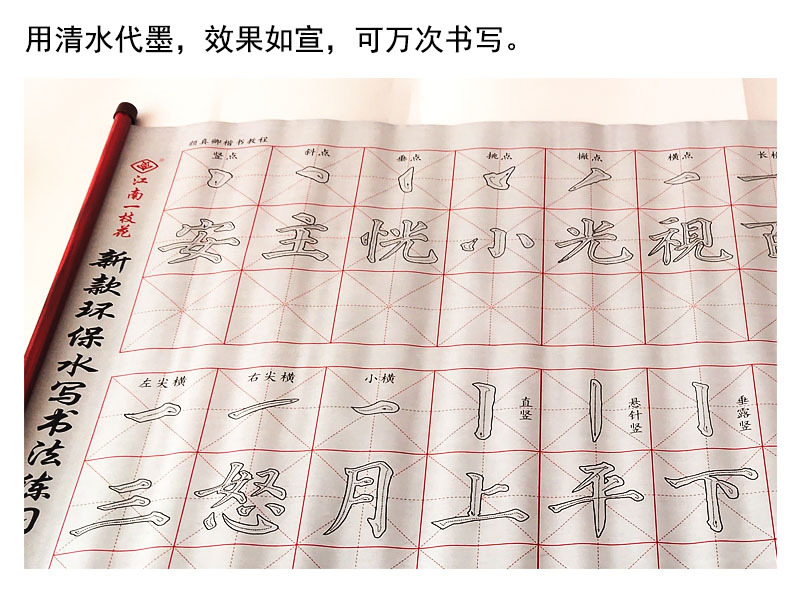 用清水代墨，效果如宣，可万次书写。
颜真卿楷书教程
江南一枝花
新款环保水写书法练习
竖点 斜点 垂点 挑点 撇点 横点 长横
安 主 恍 小 光 視
左尖横 右尖横 小横 直竖 悬针竖 垂露竖
三 怒 月 上 平 下